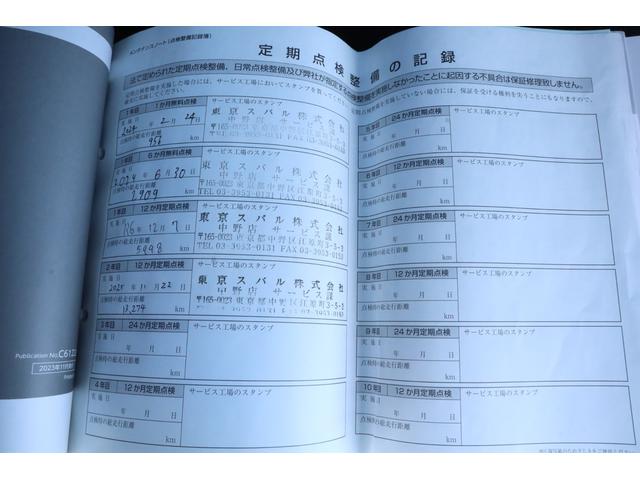 メンテナンスノート(点検整備記録簿)
定期点検整備の記録
法で定められた定期点検整備、日常点検整備及び弊社が指定する点検整備を実施しなかったことに起因する不具合は保証修理致しません。
1年目 1か月無料点検
サービス工場のスタンプ
実施日
2024年2月24日
点検時の総走行距離
958 km
東京スバル株式会社
中野店 サービス課
〒165-0023 東京都中野区江原町3-5-3
TEL 03-3953-0131 FAX 03-3953-0153
1年目 6か月無料点検
サービス工場のスタンプ
実施日
2024年6月30日
点検時の総走行距離
2909 km
東京スバル株式会社
中野店 サービス課
〒165-0023 東京都中野区江原町3-5-3
TEL 03-3953-0131 FAX 03-3953-0153
1年目 12か月定期点検
サービス工場のスタンプ
実施日
年12月7日
点検時の総走行距離
km
東京スバル株式会社
中野店 サービス課
〒165-0023 東京都中野区江原町3-5-3
TEL 03-3953-0131 FAX 03-3953-0153
2年目 12か月定期点検
サービス工場のスタンプ
実施日
2025年11月22日
点検時の総走行距離
13,274 km
東京スバル株式会社
中野店 サービス課
〒165-0023 東京都中野区江原町3-5-3
TEL 03-3953-0131 FAX 03-3953-0153
3年目 24か月定期点検
サービス工場のスタンプ
実施日
年 月 日
点検時の総走行距離
km
4年目 12か月定期点検
サービス工場のスタンプ
実施日
年 月 日
点検時の総走行距離
km
5年目 24か月定期点検
サービス工場のスタンプ
実施日
年 月 日
点検時の総走行距離
km
6年目 12か月定期点検
サービス工場のスタンプ
実施日
年 月 日
点検時の総走行距離
km
7年目 24か月定期点検
サービス工場のスタンプ
実施日
年 月 日
点検時の総走行距離
km
8年目 12か月定期点検
サービス工場のスタンプ
実施日
年 月 日
点検時の総走行距離
km
9年目 24か月定期点検
サービス工場のスタンプ
実施日
年 月 日
点検時の総走行距離
km
10年目 12か月定期点検
サービス工場のスタンプ
実施日
年 月 日
点検時の総走行距離
km
Publication No.
2023年11月